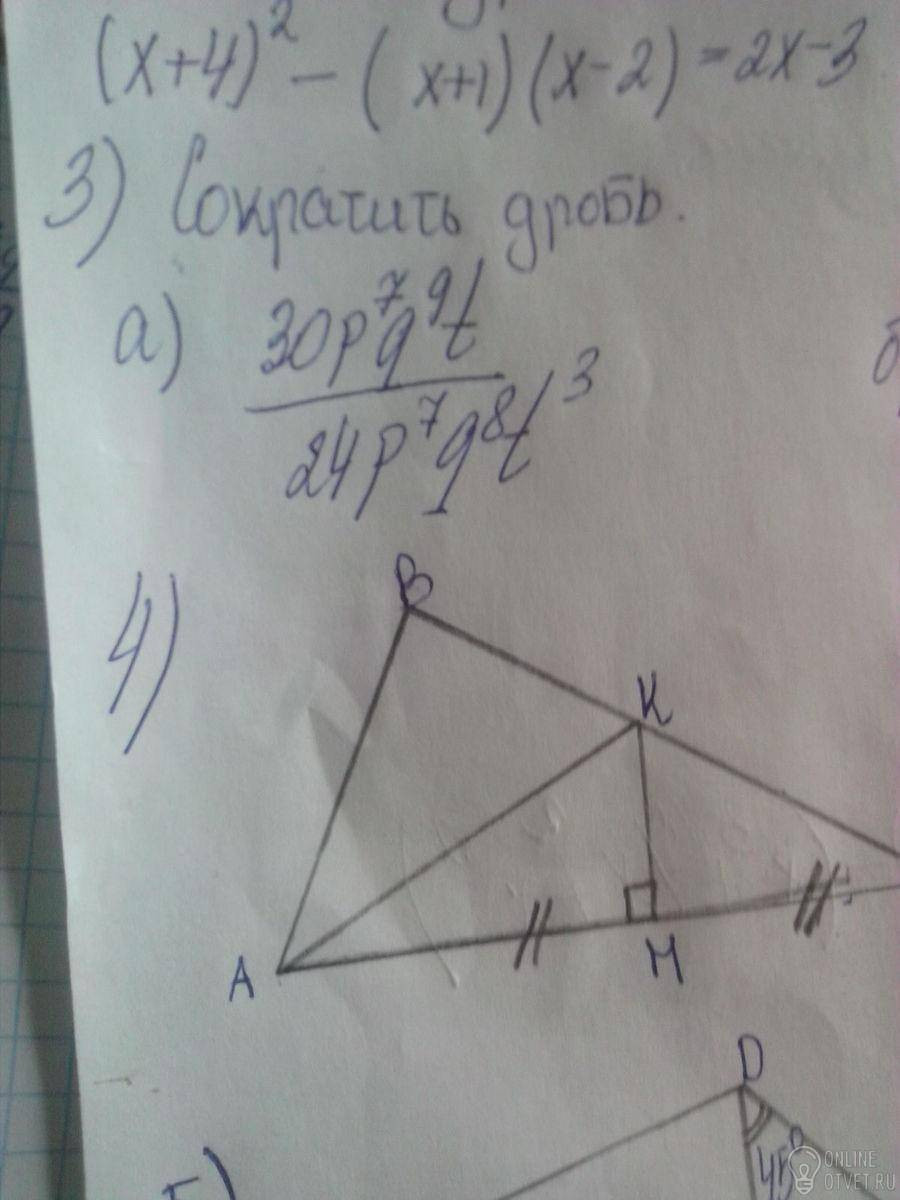 (x+4)² – (x+1)(x-2) = 2x-3
3) Сократить дробь.
а) 30p⁷q⁹t
24p⁷q⁸t³
б
4)
B
K
A
M
D
5)
ONLINE
OTVET.RU